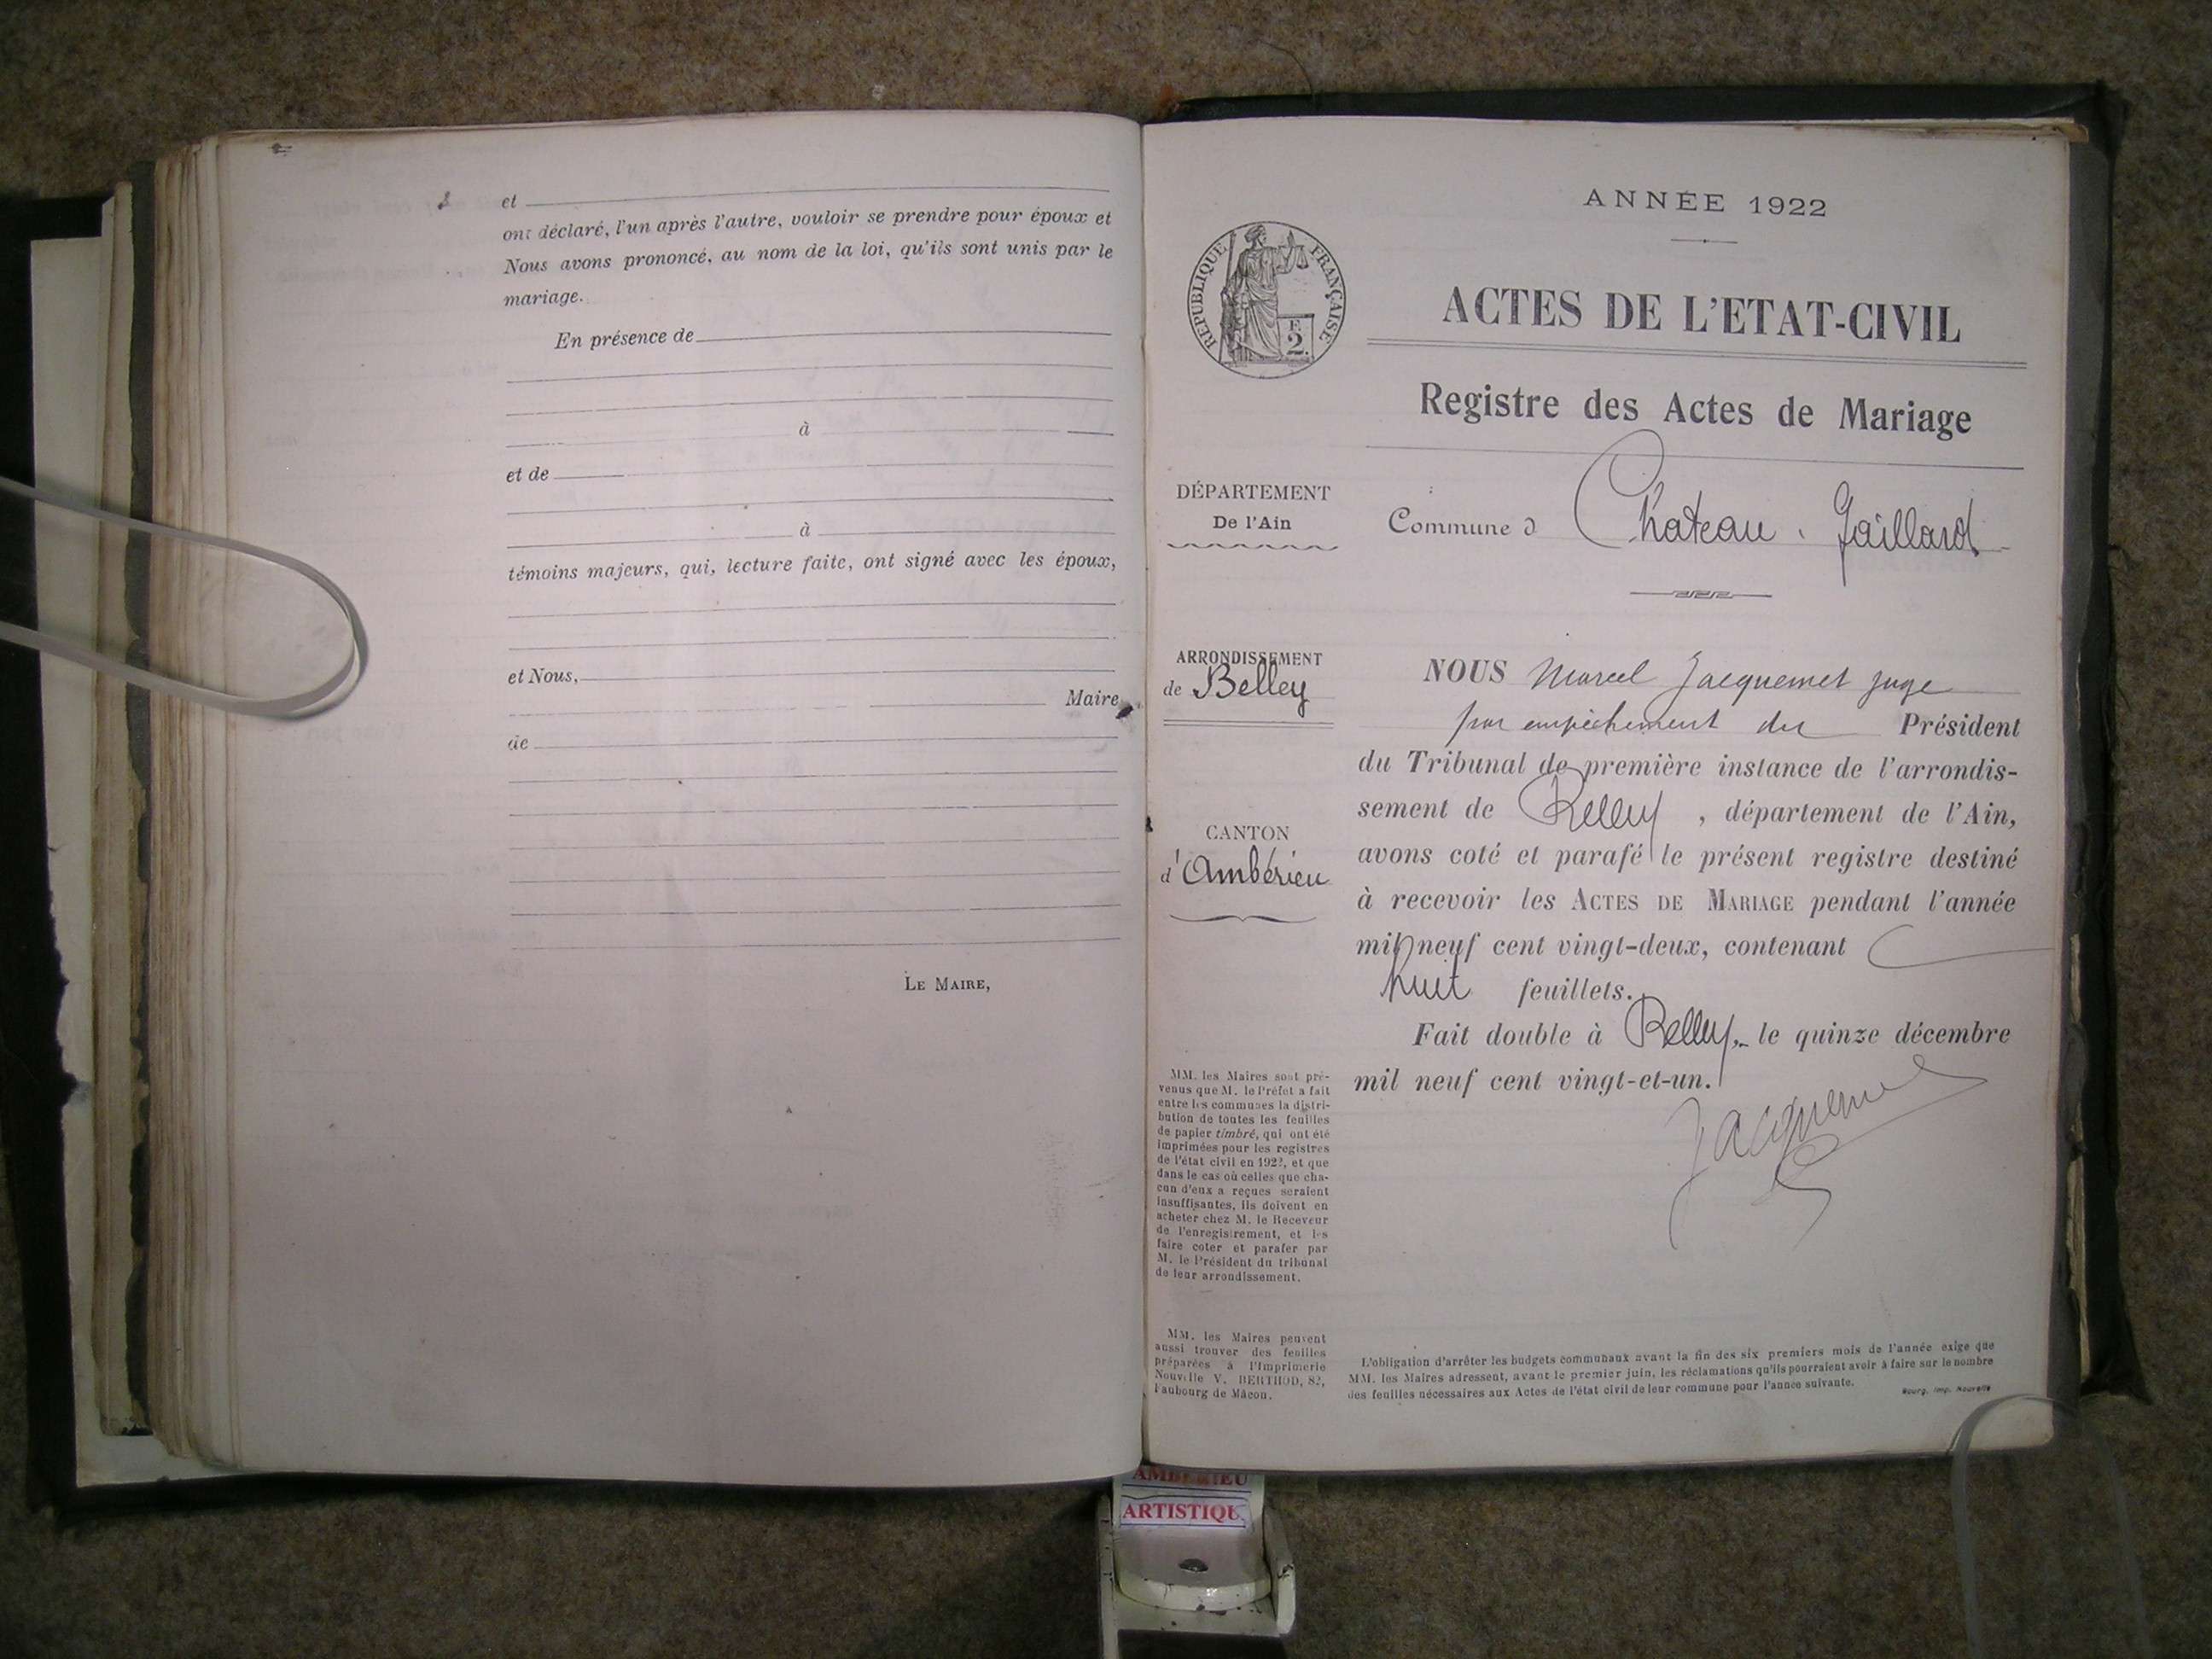 et
ont déclaré, l'un après l'autre, vouloir se prendre pour époux et
Nous avons prononcé, au nom de la loi, qu'ils sont unis par le
mariage.
En présence de
à
et de
à
témoins majeurs, qui, lecture faite, ont signé avec les époux,
et Nous,
Maire
de
LE MAIRE,
ANNÉE 1922
RÉPUBLIQUE FRANÇAISE
F.
2.
ACTES DE L'ETAT-CIVIL
Registre des Actes de Mariage
DÉPARTEMENT
De l'Ain
Commune d Chateau. Gaillard
ARRONDISSEMENT
de Belley
CANTON
d'Ambérieu
NOUS Marcel Jacquemet juge
par empêchement du Président
du Tribunal de première instance de l'arrondis-
sement de Belley, département de l'Ain,
avons coté et parafé le présent registre destiné
à recevoir les ACTES DE MARIAGE pendant l'année
mil neuf cent vingt-deux, contenant
huit feuillets.
Fait double à Belley, le quinze décembre
mil neuf cent vingt-et-un.
Jacquemet
MM. les Maires sont pré-
venus que M. le Préfet a fait
entre les communes la distri-
bution de toutes les feuilles
de papier timbré, qui ont été
imprimées pour les registres
de l'état civil en 1922, et que
dans le cas où celles que cha-
cun d'eux a reçues seraient
insuffisantes, ils doivent en
acheter chez M. le Receveur
de l'enregistrement, et les
faire coter et parafer par
M. le Président du tribunal
de leur arrondissement.
MM. les Maires peuvent
aussi trouver des feuilles
préparées à l'Imprimerie
Nouvelle V. BERTHOD, 82,
Faubourg de Mâcon.
L'obligation d'arrêter les budgets communaux avant la fin des six premiers mois de l'année exige que
MM. les Maires adressent, avant le premier juin, les réclamations qu'ils pourraient avoir à faire sur le nombre
des feuilles nécessaires aux Actes de l'état civil de leur commune pour l'année suivante.
Bourg, Imp. Nouvelle
AMBERIEU
ARTISTIQU